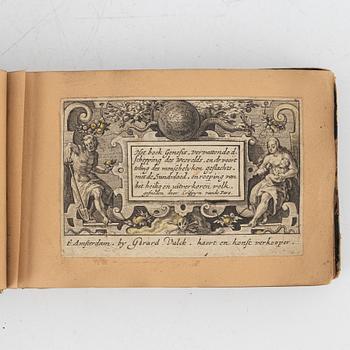 Het boek Genesis, vervattende d
schepping des Werelds, en de voort
teling des menschelyken geslachts,
mits de Sundvloed, en roeping van
het heilig en uitverkoren volk,
gesneden door Crispyn vande Pas.
t'Amsterdam, by Gerard Valck, kaert en konst verkooper.